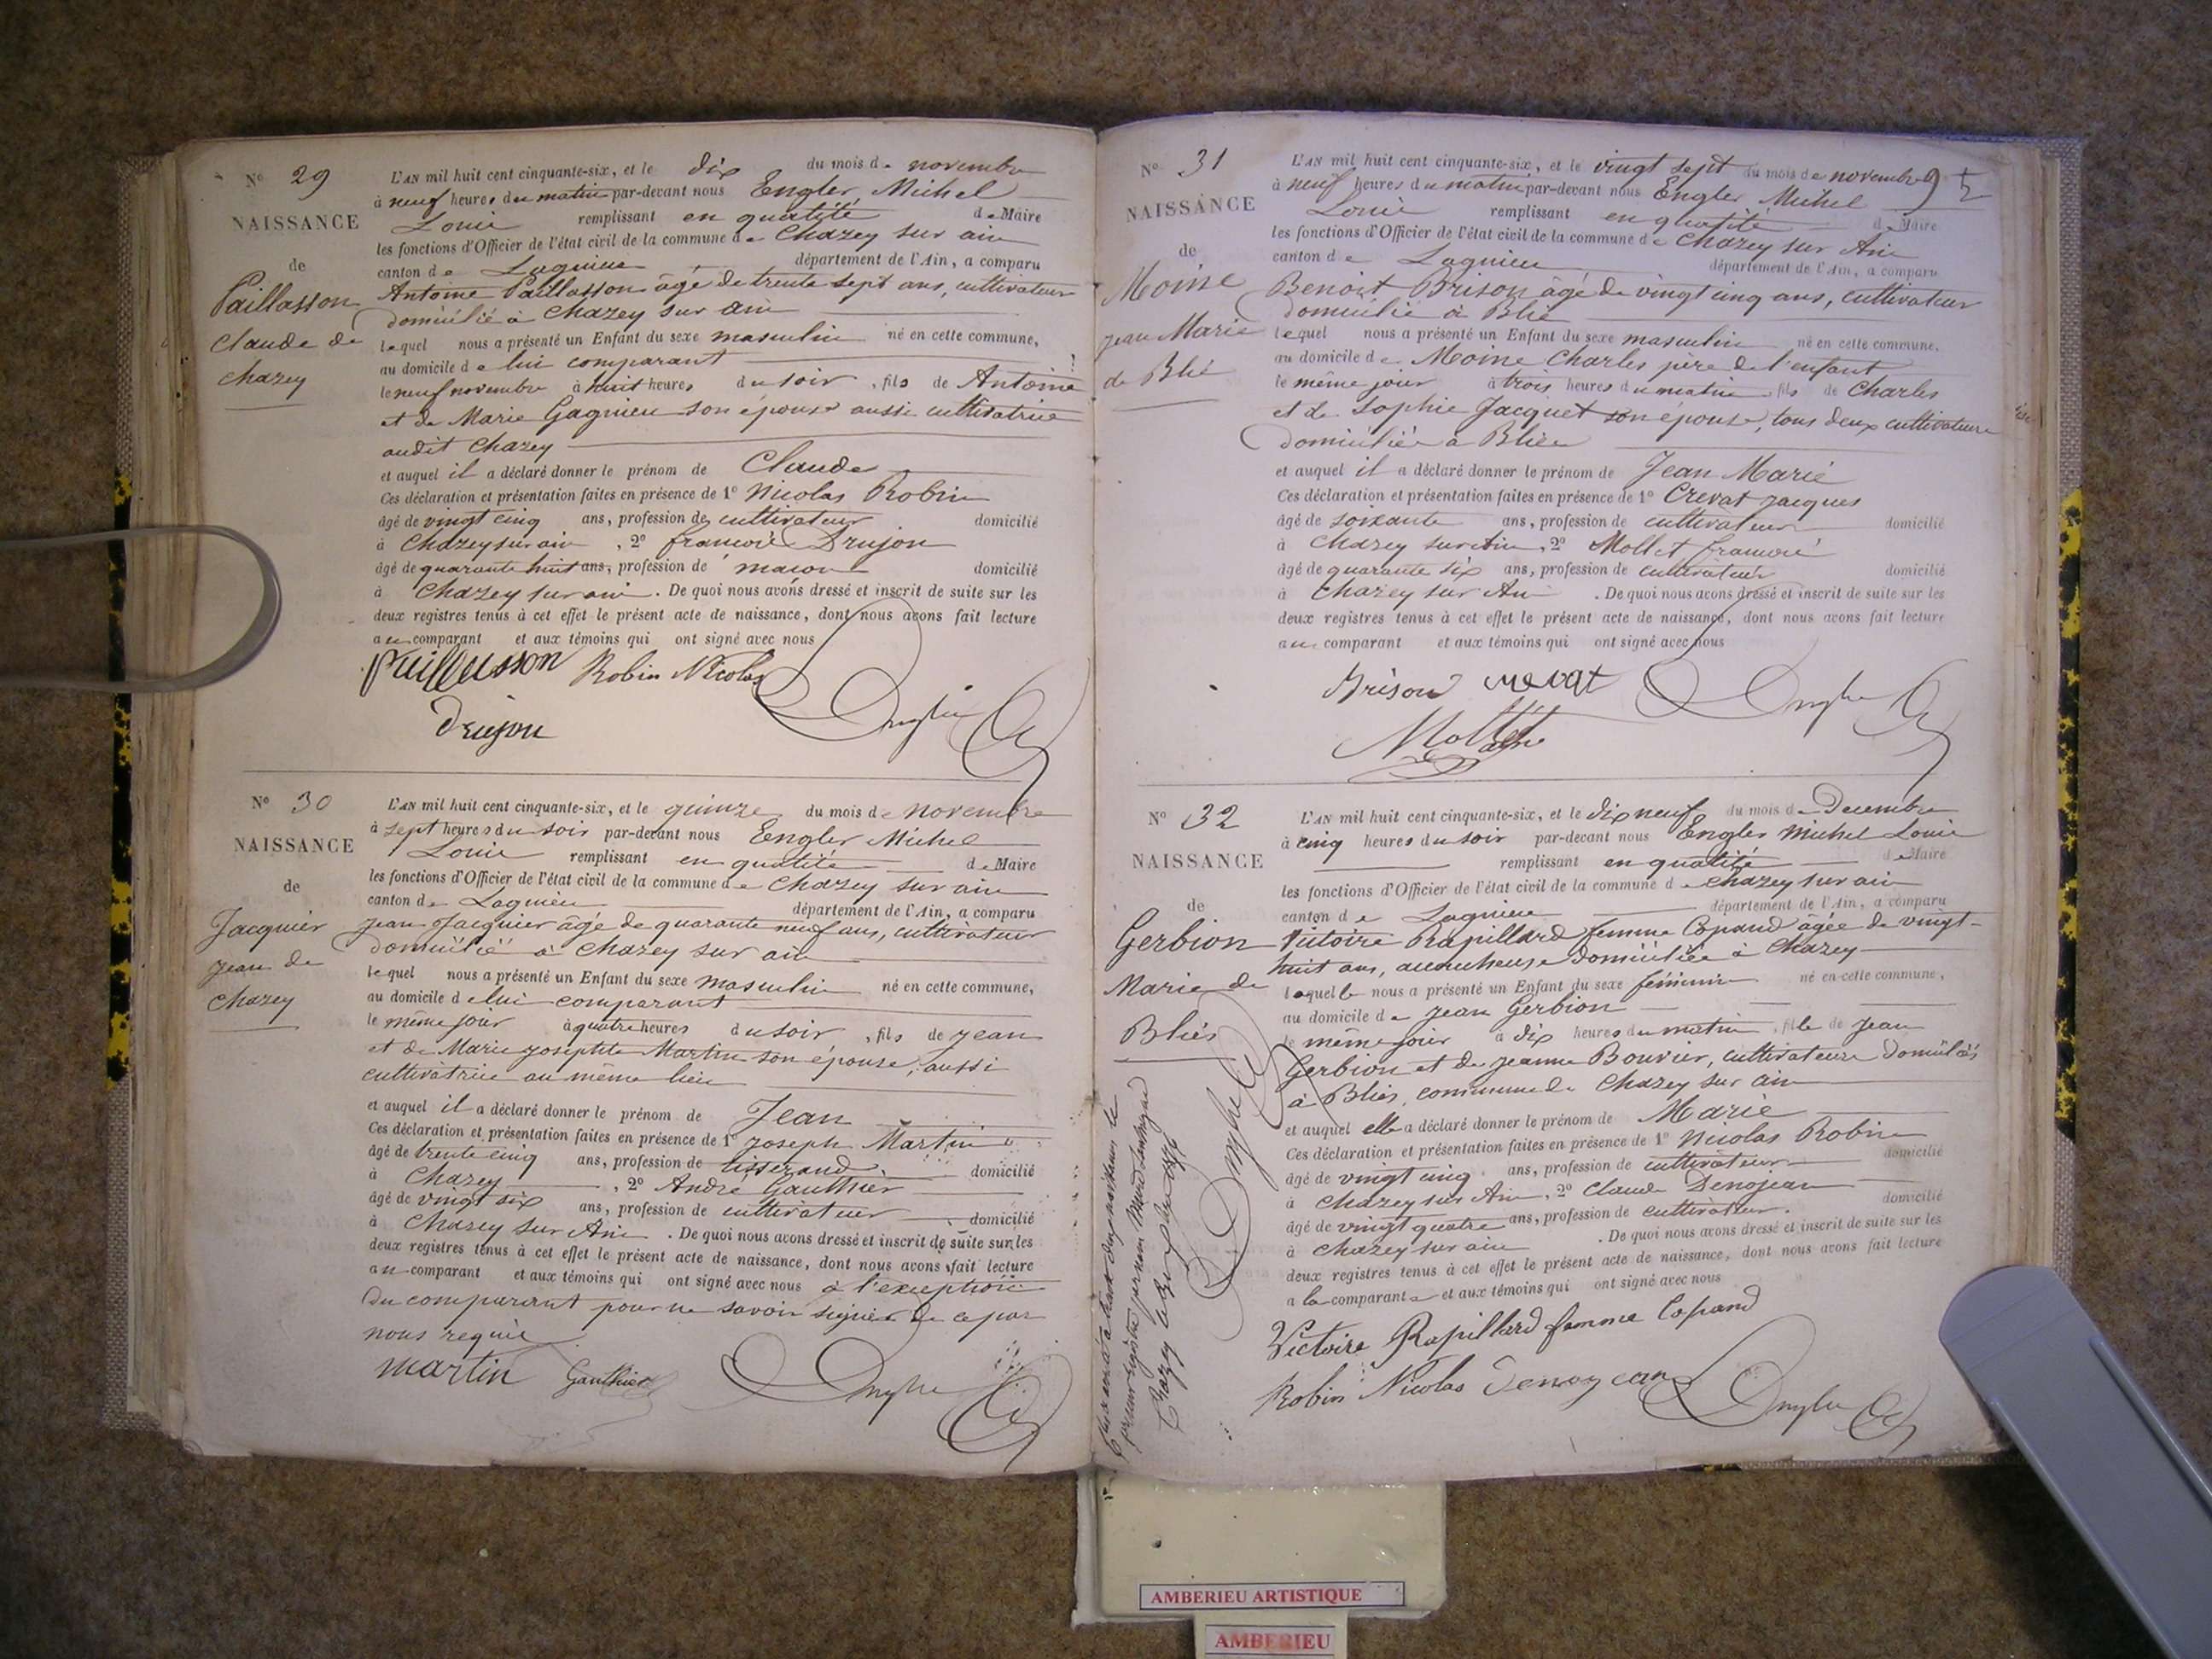 N° 29
NAISSANCE
de
Paillasson
Claude de
Chazey
L'AN mil huit cent cinquante-six, et le dix du mois de novembre
à neuf heures du matin par-devant nous Engler Michel
Louis remplissant en qualité de Maire
les fonctions d'Officier de l'état civil de la commune de Chazey sur ain
canton de Lagnieu département de l'Ain, a comparu
Antoine Paillasson âgé de trente sept ans, cultivateur
domicilié à Chazey sur ain
lequel nous a présenté un Enfant du sexe masculin né en cette commune,
au domicile de lui comparant
le neuf novembre à huit heures du soir, fils de Antoine
et de Marie Gagnieu son épouse aussi cultivatrice
audit Chazey
et auquel il a déclaré donner le prénom de Claude
Ces déclaration et présentation faites en présence de 1° Nicolas Robin
âgé de vingt cinq ans, profession de cultivateur domicilié
à Chazey sur ain, 2° françois Drujon
âgé de quarante huit ans, profession de maçon domicilié
à Chazey sur ain. De quoi nous avons dressé et inscrit de suite sur les
deux registres tenus à cet effet le présent acte de naissance, dont nous avons fait lecture
au comparant et aux témoins qui ont signé avec nous
Paillasson Robin Nicolas
Drujon Engler
N° 30
NAISSANCE
de
Jacquier
Jean de
Chazey
L'AN mil huit cent cinquante-six, et le quinze du mois de novembre
à sept heures du soir par-devant nous Engler Michel
Louis remplissant en qualité de Maire
les fonctions d'Officier de l'état civil de la commune de Chazey sur ain
canton de Lagnieu département de l'Ain, a comparu
Jean Jacquier âgé de quarante neuf ans, cultivateur
domicilié à Chazey sur ain
lequel nous a présenté un Enfant du sexe masculin né en cette commune,
au domicile de lui comparant
le même jour à quatre heures du soir, fils de Jean
et de Marie Josephte Martin son épouse, aussi
cultivatrice au même lieu
et auquel il a déclaré donner le prénom de Jean
Ces déclaration et présentation faites en présence de 1° Joseph Martin
âgé de trente cinq ans, profession de tisserand domicilié
à Chazey, 2° André Gauthier
âgé de vingt six ans, profession de cultivateur domicilié
à Chazey sur Ain. De quoi nous avons dressé et inscrit de suite sur les
deux registres tenus à cet effet le présent acte de naissance, dont nous avons fait lecture
au comparant et aux témoins qui ont signé avec nous à l'exception
du comparant pour ne savoir signer de ce par
nous requis
Martin Gauthier Engler
N° 31
95
NAISSANCE
de
Moine
Jean Marie
de Blié
L'AN mil huit cent cinquante-six, et le vingt sept du mois de novembre
à neuf heures du matin par-devant nous Engler Michel
Louis remplissant en qualité de Maire
les fonctions d'Officier de l'état civil de la commune de Chazey sur Ain
canton de Lagnieu département de l'Ain, a comparu
Benoit Brison âgé de vingt cinq ans, cultivateur
domicilié à Blié
lequel nous a présenté un Enfant du sexe masculin né en cette commune,
au domicile de Moine Charles père de l'enfant
le même jour à trois heures du matin, fils de Charles
et de Sophie Jacquet son épouse, tous deux cultivateurs
domiciliés à Bliès
et auquel il a déclaré donner le prénom de Jean Marie
Ces déclaration et présentation faites en présence de 1° Crevat Jacques
âgé de soixante ans, profession de cultivateur domicilié
à Chazey sur Ain, 2° Mollet françois
âgé de quarante six ans, profession de cultivateur domicilié
à Chazey sur Ain. De quoi nous avons dressé et inscrit de suite sur les
deux registres tenus à cet effet le présent acte de naissance, dont nous avons fait lecture
au comparant et aux témoins qui ont signé avec nous
Brison Crevat Engler
Mollet
N° 32
NAISSANCE
de
Gerbion
Marie de
Bliés
L'AN mil huit cent cinquante-six, et le dix neuf du mois de Decembre
à cinq heures du soir par-devant nous Engler Michel Louis
remplissant en qualité de Maire
les fonctions d'Officier de l'état civil de la commune de Chazey sur ain
canton de Lagnieu département de l'Ain, a comparu
Victoire Rapillard femme Copand âgée de vingt-
huit ans, accoucheuse domiciliée à Chazey
laquelle nous a présenté un Enfant du sexe féminin né en cette commune,
au domicile de Jean Gerbion
le même jour à dix heures du matin, fille de Jean
Gerbion et de Jeanne Bouvier, cultivateurs domiciliés
à Bliés, commune de Chazey sur ain
et auquel elle a déclaré donner le prénom de Marie
Ces déclaration et présentation faites en présence de 1° Nicolas Robin
âgé de vingt cinq ans, profession de cultivateur domicilié
à Chazey sur Ain, 2° Claude Denojean
âgé de vingt quatre ans, profession de cultivateur. domicilié
à Chazey sur ain. De quoi nous avons dressé et inscrit de suite sur les
deux registres tenus à cet effet le présent acte de naissance, dont nous avons fait lecture
a la comparante et aux témoins qui ont signé avec nous
Victoire Rapillard femme Copand
Robin Nicolas Denojean Engler
Engler
AMBERIEU ARTISTIQUE
AMBERIEU